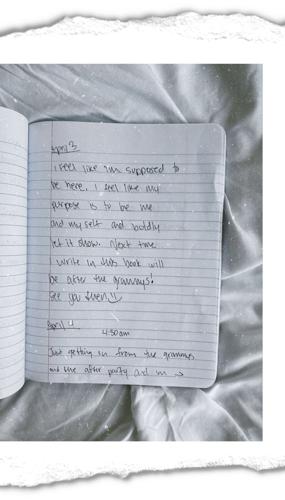 April 3
I feel like I'm supposed to
be here. I feel like my
purpose is to be me
and my self and boldly
let it show. Next time
I write in this book will
be after the grammys!
See you then
April 4
4:50am
Just getting in from the grammys
and the after party and im